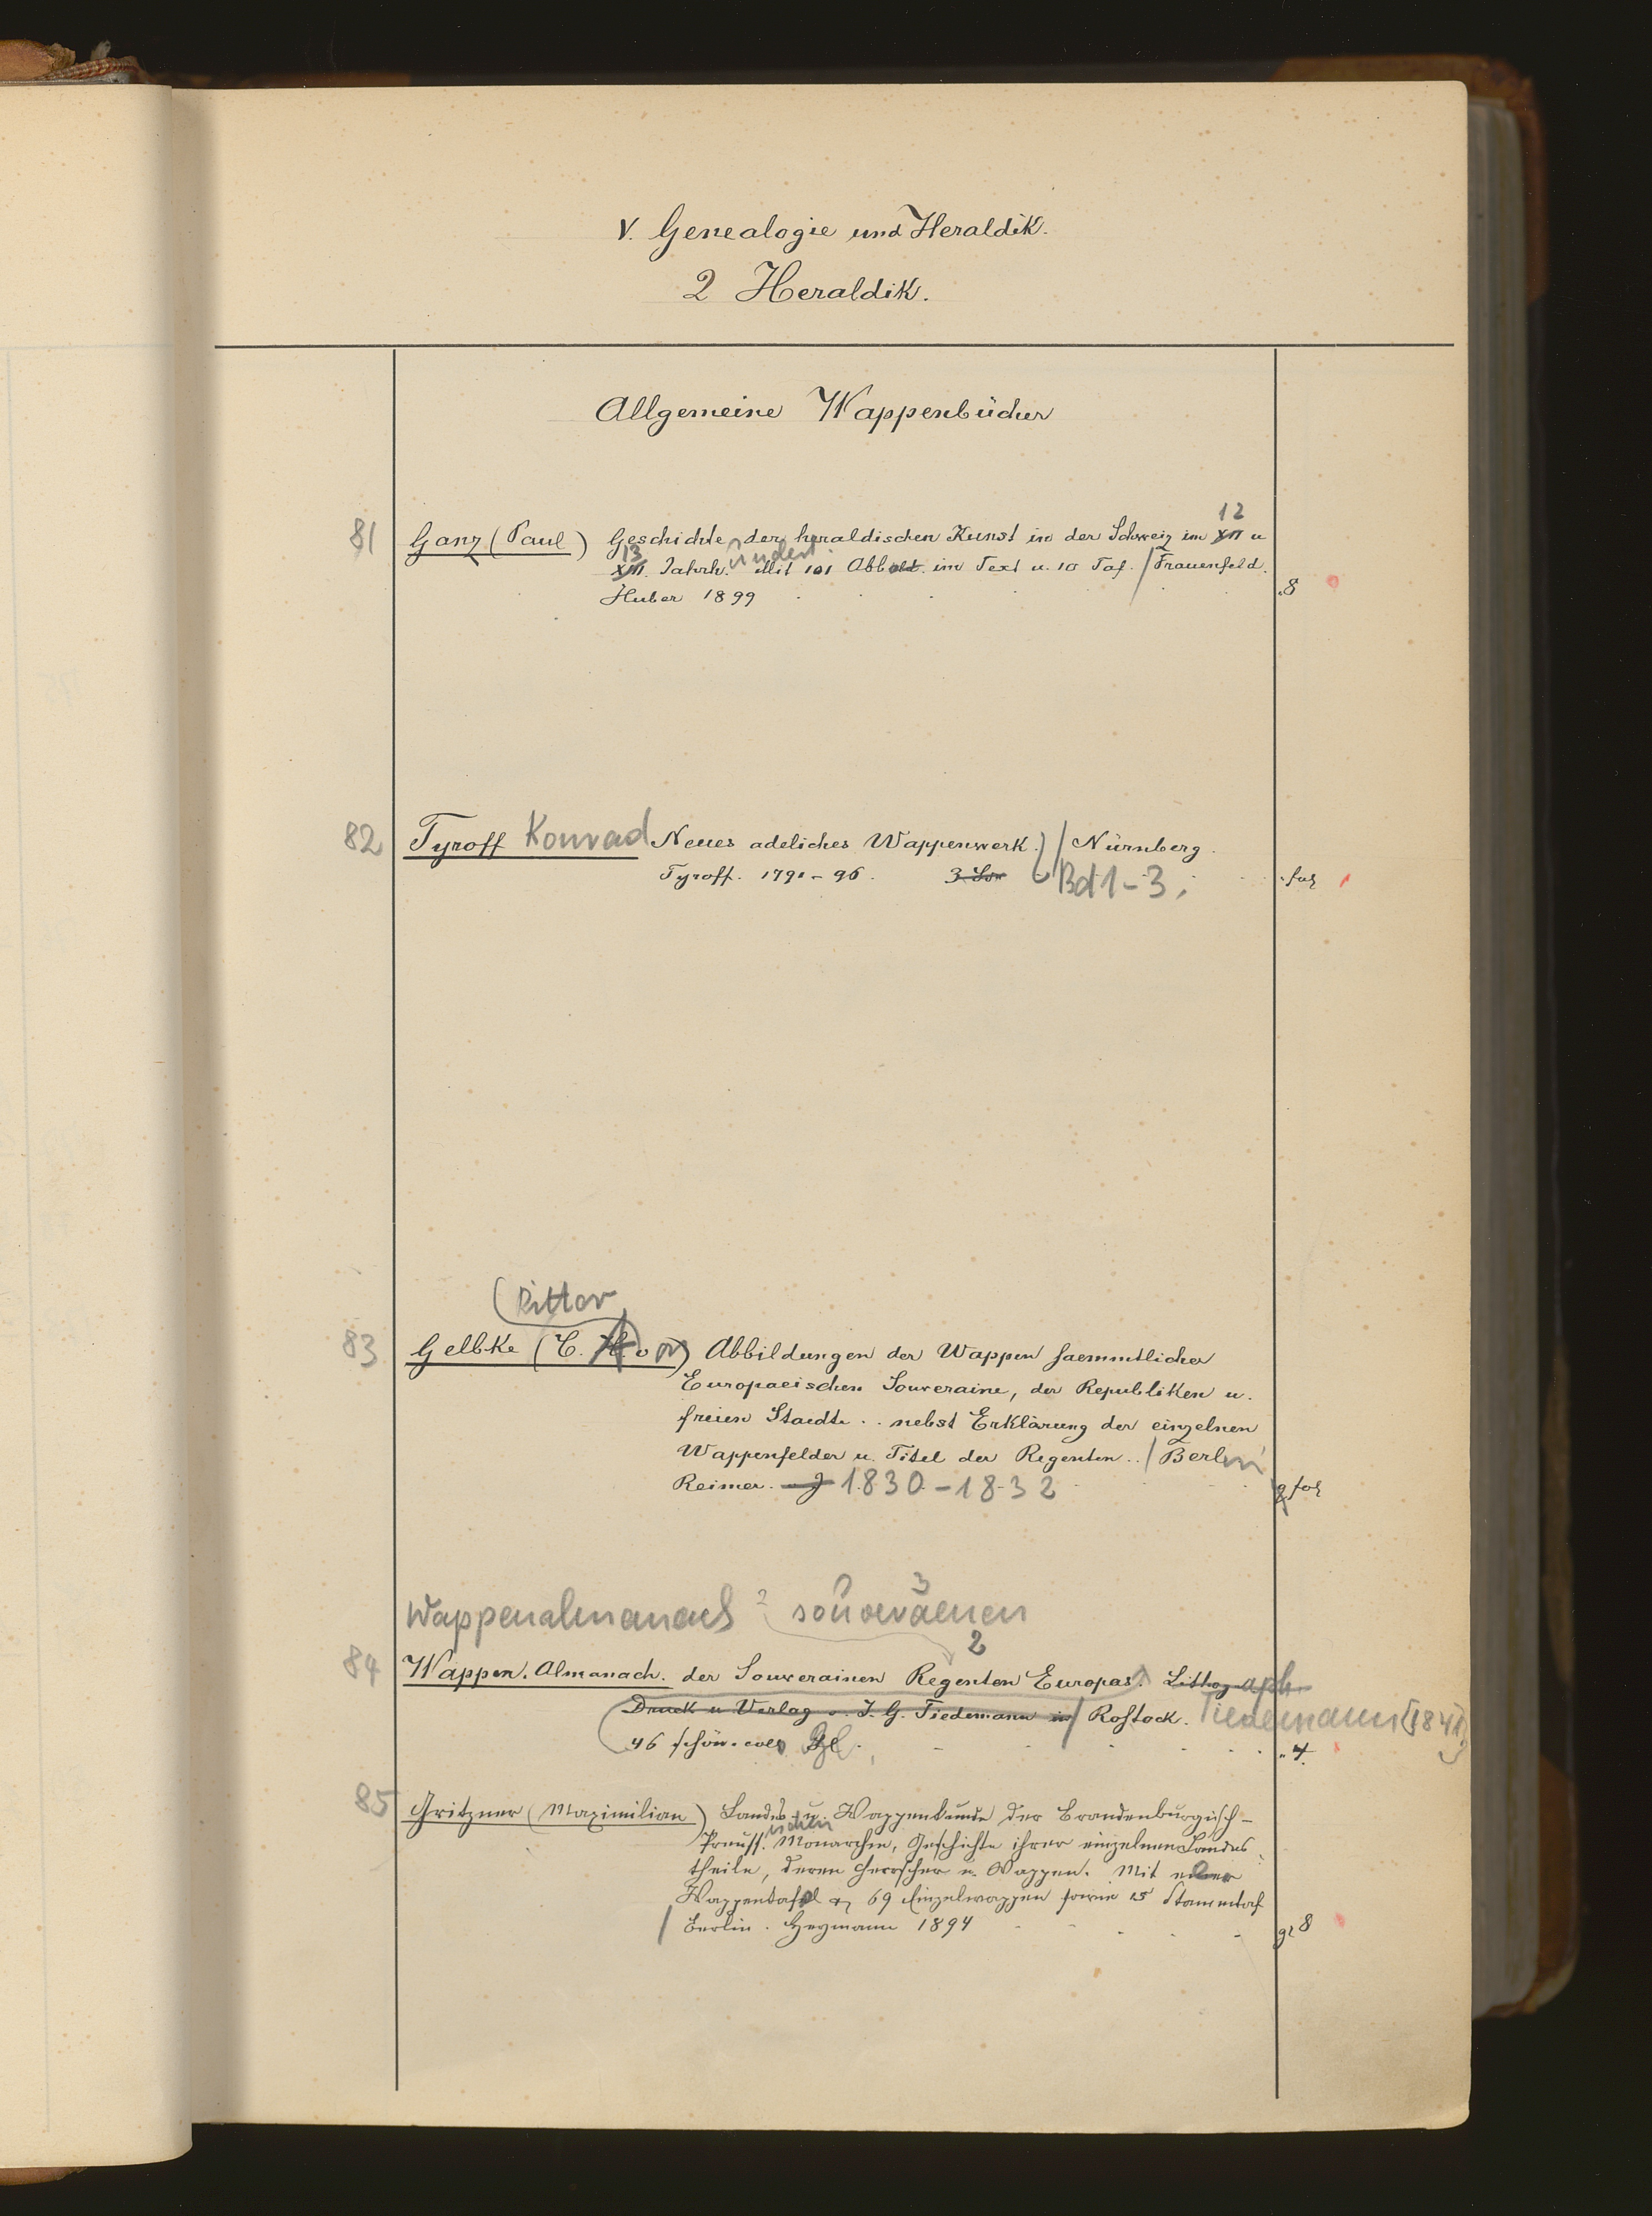 V. Genealogie und Heraldik.
2 Heraldik.
Allgemeine Wappenbücher
12
81 Ganz (Paul) Geschichte der heraldischen Kunst in der Schweiz im XII u
13 undert
XIII. Jahrh. Mit 101 Abbild. im Text u. 10 Taf. / Frauenfeld.
Huber 1899 . 8
82 Tyroff Konrad Neues adeliches Wappenwerk. / Nürnberg.
Tyroff. 1791-96. Bd 1-3. fol
(Ritter
83 Gelbke (C. H. von) Abbildungen der Wappen saemmtlicher
Europaeischen Souveraine, der Republiken u.
freien Staedte .. nebst Erklärung der einzelnen
Wappenfelder u. Titel der Regenten .. / Berlin
Reimer. 1830-1832 g fol
Wappenalmanach souveränen
2
84 Wappen-Almanach. der Souverainen Regenten Europas. Lithograph
Druck u Verlag v. J. G. Tiedemann in / Rostock. Tiedemann [1841]
46 Bl. 4
85 Gritzner (Maximilian) Landes- u. Wappenkunde der Brandenburgisch-
ischen
Preuss. Monarchie, Geschichte ihrer einzelnen Landes
theile, deren Herrscher u. Wappen. Mit einer
Wappentafel 69 Einzelwappen sowie 15 Stammtaf
/ Berlin. Heymann 1894 gr 8